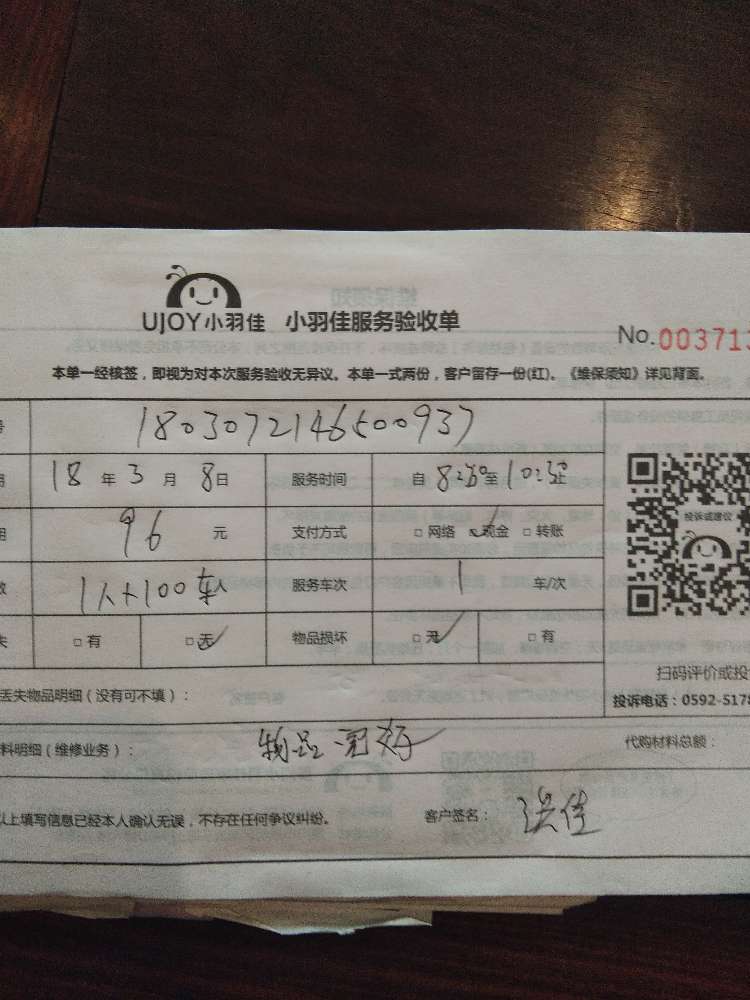 UJOY小羽佳 小羽佳服务验收单
No.003713
本单一经核签，即视为对本次服务验收无异议。本单一式两份，客户留存一份(红)。《维保须知》详见背面。
号 1803072146500937
期 18 年 3 月 8 日 服务时间 自 8:30 至 10:30
用 96 元 支付方式 □ 网络 ☑ 现金 □ 转账
数 1人+100车 人 服务车次 1 车/次
失 □ 有 □ 无 物品损坏 □ 无 □ 有
投诉或建议
扫码评价或投
丢失物品明细（没有可不填）：
投诉电话：0592-5178
料明细（维修业务）： 物品完好 代购材料总额：
以上填写信息已经本人确认无误，不存在任何争议纠纷。 客户签名：